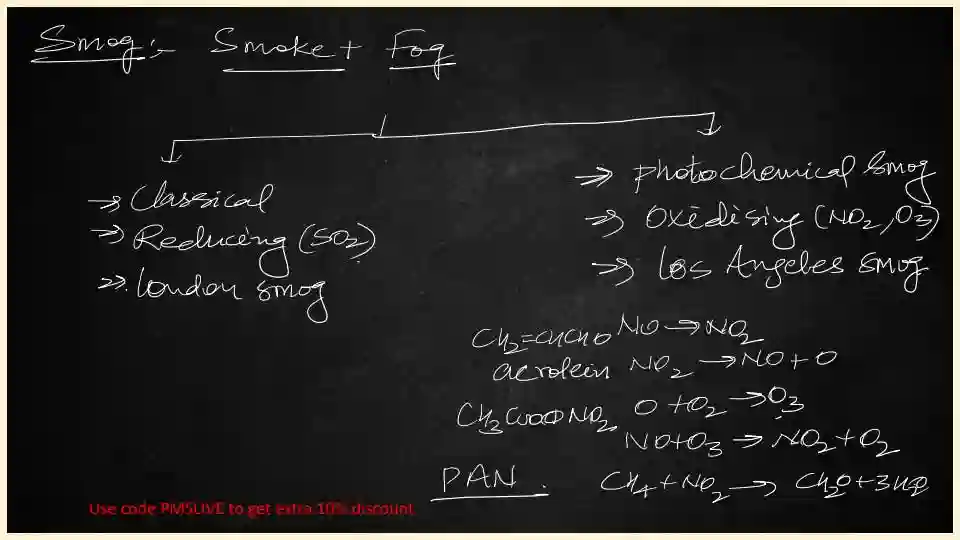 Smog :- Smoke + Fog
→ Classical
→ Reducing (SO2)
→ London smog
→ photochemical smog
→ Oxidising (NO2, O3)
→ Los Angeles smog
CH2=CHCHO NO → NO2
acrolein NO2 → NO + O
O + O2 → O3
NO+O3 → NO2 + O2
PAN. CH4 + NO2 → CH2O + 3H2O
Use code PMSLIVE to get extra 10% discount